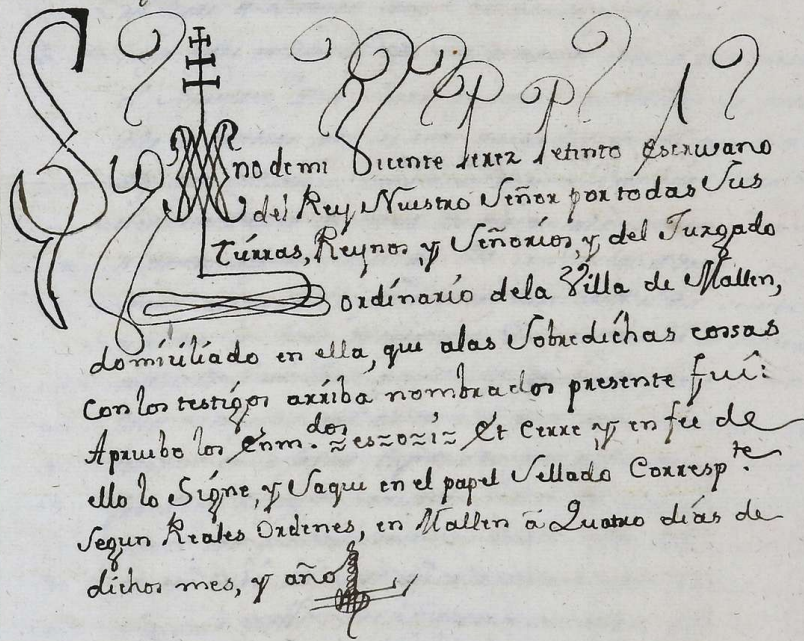 Signo de mi Vicente Perez Petinto Escriuano
del Rey Nuestro Señor por todas Sus
tierras, Reynos, y Señoríos, y del Juzgado
ordinario dela Villa de Mallen,
domiciliado en ella, que alas Sobredichas cossas
con los testigos arriba nombrados presente fui:
Apruebo los Enm.dos ≈es≈o≈i≈ Et Cerre y en fee de
ello lo Signe, y Saque en el papel Sellado Corresp.te
segun Reales Ordenes, en Mallen â Quatro dias de
dichos mes, y año